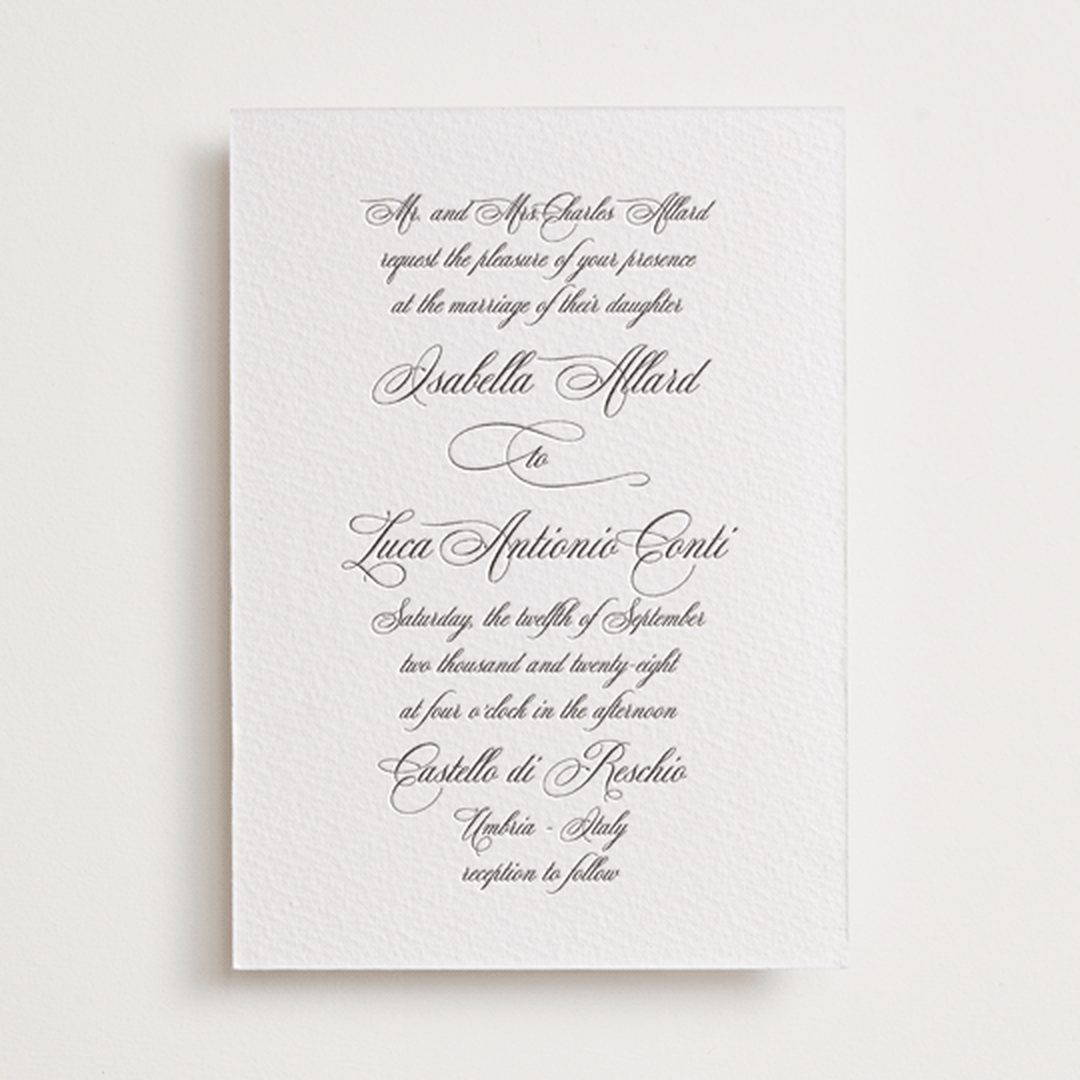 Mr. and Mrs. Charles Allard
request the pleasure of your presence
at the marriage of their daughter
Isabella Allard
to
Luca Antionio Conti
Saturday, the twelfth of September
two thousand and twenty-eight
at four o'clock in the afternoon
Castello di Reschio
Umbria - Italy
reception to follow